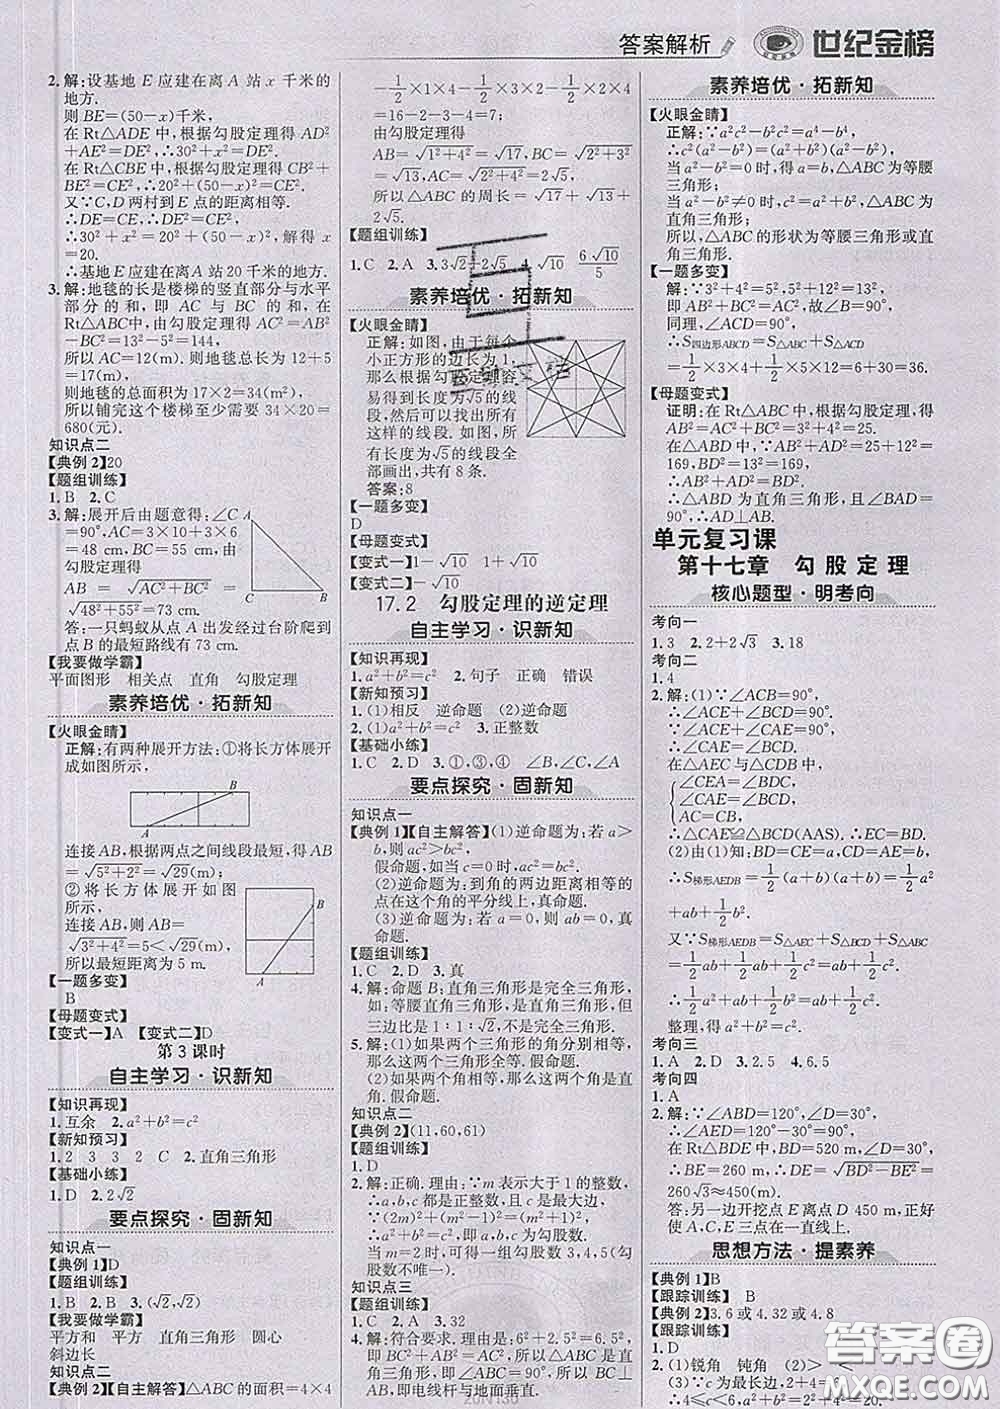 答案解析
世纪金榜
2.解:设基地 E 应建在离 A 站 x 千米的
地方.
则 BE=(50-x)千米,
在 Rt△ADE 中,根据勾股定理得 AD²
+AE²=DE²,∴30²+x²=DE².
在 Rt△CBE 中,根据勾股定理得 CB²+
BE²=CE²,∴20²+(50-x)²=CE².
又∵C,D 两村到 E 点的距离相等.
∴DE=CE,∴DE²=CE²,
∴30²+x²=20²+(50-x)²,解得 x
=20.
∴基地 E 应建在离 A 站 20 千米的地方.
3.解:地毯的长是楼梯的竖直部分与水平
部分的和,即 AC 与 BC 的和,在
Rt△ABC 中,由勾股定理得 AC²=AB²
-BC²=13²-5²=144,
所以 AC=12(m).则地毯总长为 12+5
=17(m),
则地毯的总面积为 17×2=34(m²),
所以铺完这个楼梯至少需要 34×20=
680(元).
知识点二
【典例2】20
【题组训练】
1.B 2.C
3.解:展开后由题意得:∠C
=90°,AC=3×10+3×6
=48 cm,BC=55 cm,由
勾股定理得
AB = √AC²+BC² =
√48²+55²=73 cm.
A
C
B
答:一只蚂蚁从点 A 出发经过台阶爬到
点 B 的最短路线有 73 cm.
【我要做学霸】
平面图形 相关点 直角 勾股定理
素养培优·拓新知
【火眼金睛】
正解:有两种展开方法:①将长方体展开
成如图所示,
B
A
连接 AB,根据两点之间线段最短,得 AB
=√5²+2²=√29(m);
②将长方体展开如图
所示,
连接 AB,则 AB=
√3²+4²=5<√29(m),
所以最短距离为 5 m.
B
A
【一题多变】
B
【母题变式】
【变式一】A 【变式二】D
第 3 课时
自主学习·识新知
【知识再现】
1.互余 2.a²+b²=c²
【新知预习】
1.2 3 3 2 C 2.直角三角形
【基础小练】
1.D 2.2√2
要点探究·固新知
知识点一
【典例1】D
【题组训练】
1.B 2.B 3.(√2,√2)
【我要做学霸】
平方和 平方 直角三角形 圆心
斜边长
知识点二
【典例2】【自主解答】△ABC 的面积=4×4
-1/2×1×4-1/2×3×2-1/2×2×4
=16-2-3-4=7;
由勾股定理得
AB=√1²+4²=√17,BC=√2²+3²
=√13,AC=√2²+4²=2√5,
所以△ABC 的周长=√17+√13+
2√5.
【题组训练】
1.C 2.A 3.3√2+2√5 4.√10 6√10/5
素养培优·拓新知
【火眼金睛】
正解:如图,由于每个
小正方形的边长为 1,
那么根据勾股定理容
易得到长度为√5的线
段,然后可以找出所有
这样的线段.如图,所
示,长度为√5的线段全
部画出,共有 8 条.
答案:8
【一题多变】
D
【母题变式】
【变式一】1-√10 1+√10
【变式二】-√10
17.2 勾股定理的逆定理
自主学习·识新知
【知识再现】
1.a²+b²=c² 2.句子 正确 错误
【新知预习】
1.(1)相反 逆命题 (2)逆命题
2.(1)a²+b²=c² (2)正整数
【基础小练】
1.C 2.D 3.①,③ ④,∠B,∠C,∠A
要点探究·固新知
知识点一
【典例1】【自主解答】(1)逆命题为:若 a>
b,则 ac²>bc².
假命题,如当 c=0 时,ac²=bc².
(2)逆命题为:到角的两边距离相等的
点在这个角的平分线上,真命题.
(3)逆命题为:若 a=0,则 ab=0,真
命题.
【题组训练】
1.C 2.D 3.真
4.解:命题 B;直角三角形是完全三角形.
如:等腰直角三角形,是直角三角形,但三
边比是 1∶1∶√2,不是完全三角形.
5.解:(1)如果两个三角形的角分别相等,
那么这两个三角形全等.假命题.
(2)如果两个角相等,那么这两个角是
直角.假命题.
知识点二
【典例2】(11,60,61)
【题组训练】
1.D
2.解:正确.理由:∵m 表示大于 1 的整数,
∴a,b,c 都是正整数,且 c 是最大边,
∵(2m)²+(m²-1)²=(m²+1)²,
∴a²+b²=c²,即 a,b,c 为勾股数.
当 m=2 时,可得一组勾股数 3,4,5(勾股
数不唯一).
知识点三
【题组训练】
1.C 2.A 3.32
4.解:符合要求.理由是:6²+2.5²=6.5²,
即 BC²+AB²=AC²,所以三角形
ABC 是直角三角形,所以 BC⊥AB,
即电线杆与地面垂直.
素养培优·拓新知
【火眼金睛】
正解:∵a²c²-b²c²=a⁴-b⁴,
∴c²(a²-b²)=(a²-b²)(a²+b²),
当 a²-b²=0 时,得 a=b,△ABC 为等腰
三角形;
当 a²-b²≠0 时,c²=a²+b²,△ABC 为
直角三角形;
所以,△ABC 的形状为等腰三角形或直
角三角形.
【一题多变】
解:∵4²+(2√5)²=6²,5²+12²=13²,
即 AB²+BC²=AC²,故∠B=90°,
同理,∠ACD=90°.
∴S四边形ABCD=S△ABC+S△ACD
=1/2×3×4+1/2×5×12=6+30=36.
【母题变式】
证明:在 Rt△ABC 中,根据勾股定理,得
AB²=AC²+BC²=3²+4²=25.
在△ABD 中,∵AB²+AD²=25+12²=
169,BD²=13²=169,
∴AB²+AD²=BD²,
∴△ABD 为直角三角形,且∠BAD=
90°,∴AD⊥AB.
单元复习课
第十七章 勾股定理
核心题型·明考向
考向一
1.3 2.2+2√3 3.18
考向二
1.4
2.解:(1)∵∠ACB=90°,
∴∠ACE+∠BCD=90°.
∵∠ACE+∠CAE=90°,
∴∠CAE=∠BCD.
在△AEC 与△CDB 中,
∠CEA=∠BDC,
∠CAE=∠BCD,
AC=BC,
∴△CAE≌△BCD(AAS).∴EC=BD.
(2)由(1)知:BD=CE=a,CD=AE=b,
∴S梯形AEDB=1/2(a+b)(a+b)=1/2a²
+ab+1/2b².
又∵S梯形AEDB=S△AEC+S△BCD+S△ABC
=1/2ab+1/2ab+1/2c²=ab+1/2c².
∴1/2a²+ab+1/2b²=ab+1/2c².
整理,得 a²+b²=c².
考向三
1.A 2.D 3.2.5 4.6.5
考向四
1.A
2.解:∵∠ABD=120°,∠D=30°,
∴∠AED=120°-30°=90°,
在 Rt△BDE 中,BD=520 m,∠D=
30°,
∴BE=260 m,∴DE=√BD²-BE²=
260√3≈450(m).
答:另一边开挖点 E 离点 D 450 m,正好
使 A,C,E 三点在一直线上.
思想方法·提素养
【典例1】B
【跟踪训练】 B
【典例2】3.6 或 4.32 或 4.8
【跟踪训练】
1.D
2.(1)锐角 钝角 (2)> <
答案圈
MXQE.COM